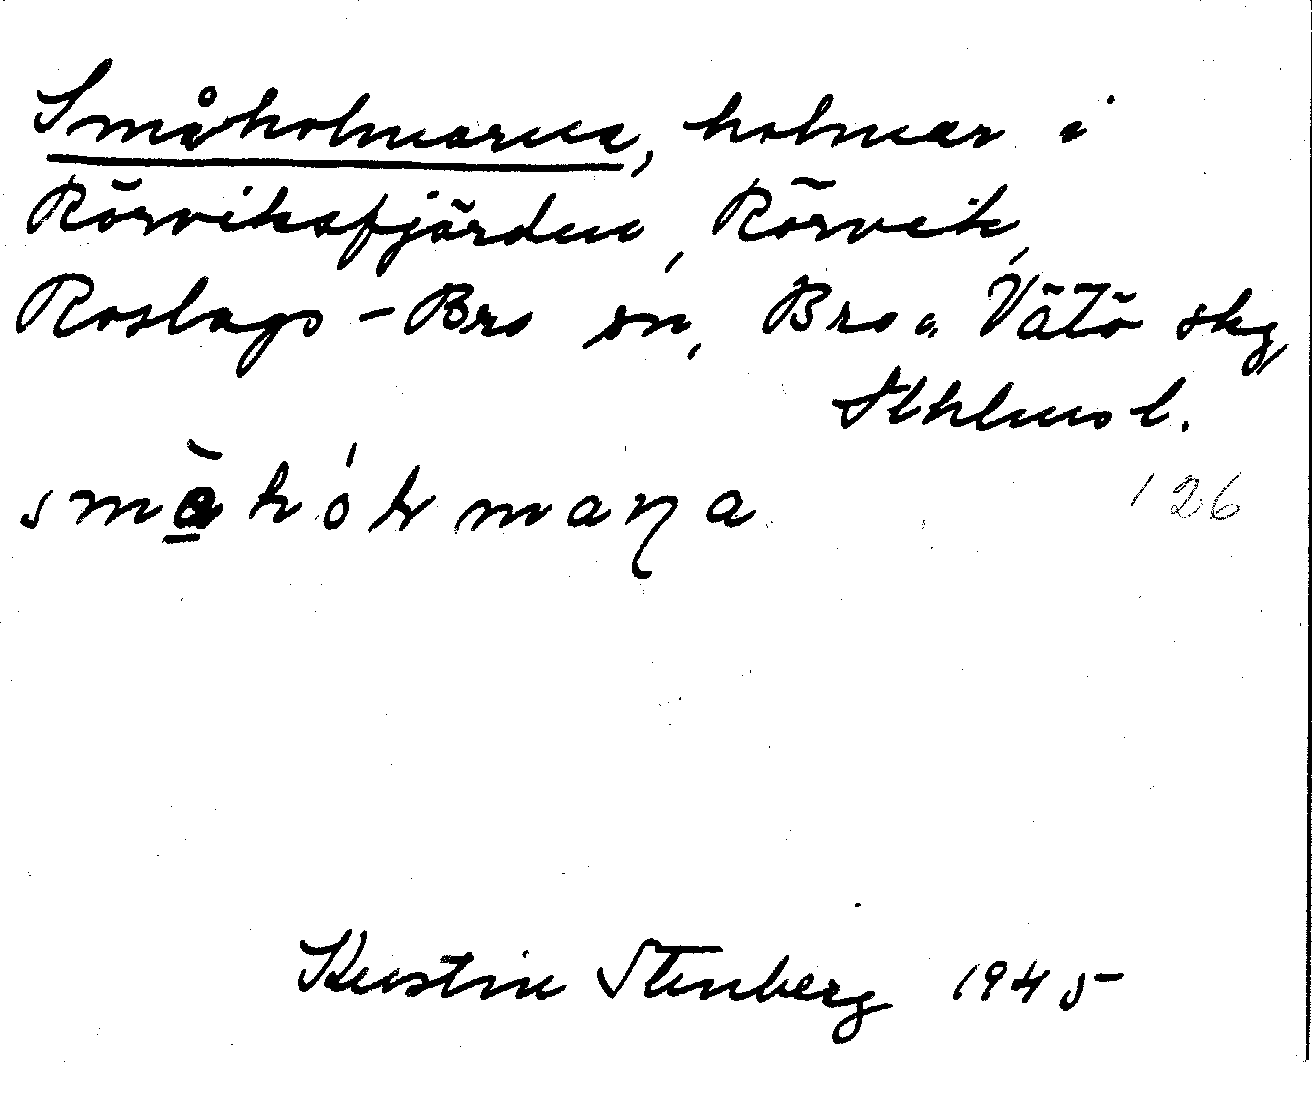 Småholmarna, holmar i
Rörviksfjärden, Rörvik,
Roslags-Bro sn, Bro o. Vätö skg,
Sthlms l.
126
Kerstin Stenberg 1945